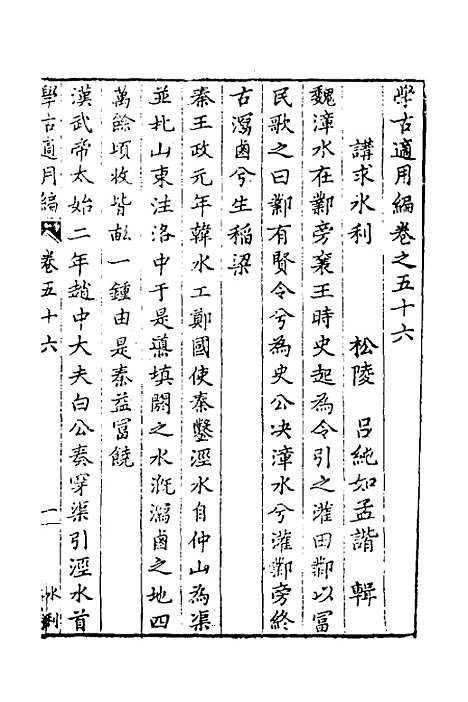 學古適用編卷之五十六
講求水利　松陵　呂純如孟諧　輯
魏漳水在鄴旁襄王時史起為令引之灌田鄴以富
民歌之曰鄴有賢令兮為史公决漳水兮灌鄴旁終
古瀉鹵兮生稻梁
秦王政元年韓水工鄭國使秦鑿涇水自仲山為渠
並北山東注洛中于是溉填閼之水溉瀉鹵之地四
萬餘頃收皆畝一鍾由是秦益富饒
漢武帝太始二年趙中大夫白公奏穿渠引涇水首
學古適用編　卷五十六　一　水利